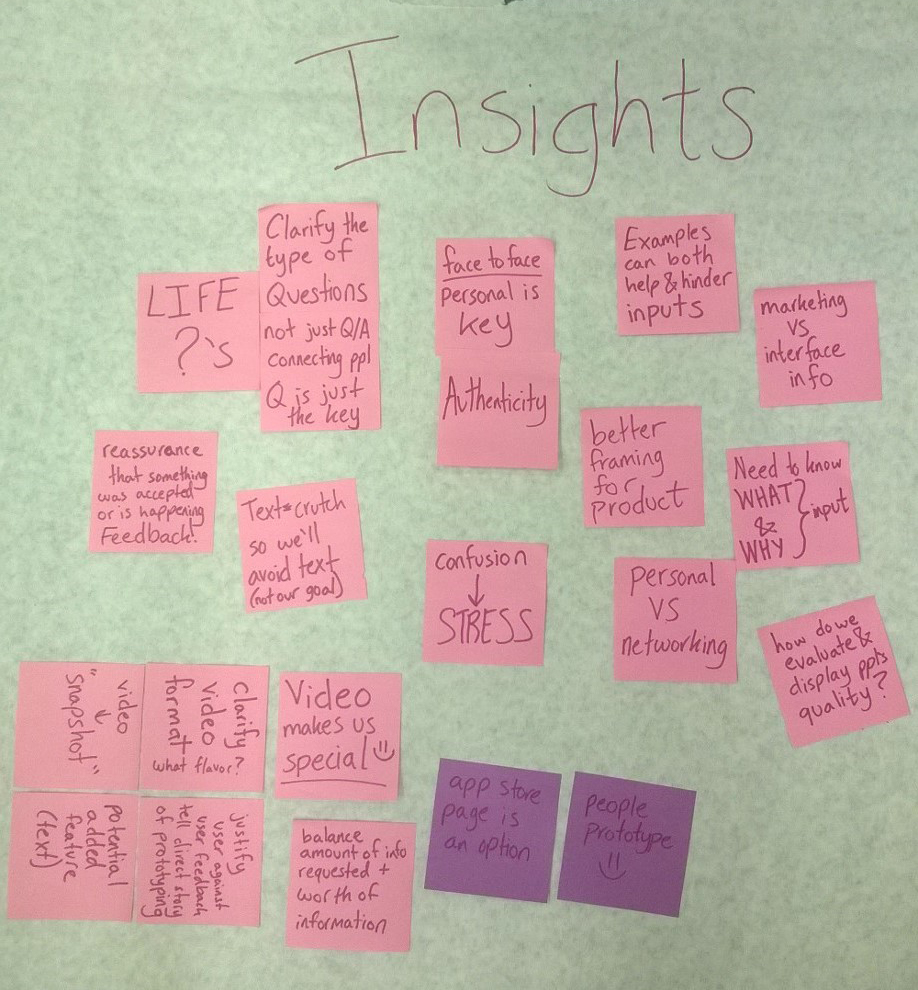 Insights
LIFE
?'s
Clarify the
type of
Questions
not just Q/A
connecting ppl
Q is just
the key
face to face
personal is
key
Authenticity
Examples
can both
help & hinder
inputs
marketing
vs
interface
info
reassurance
that something
was accepted
or is happening
Feedback!
Text=crutch
so we'll
avoid text
(not our goal)
confusion
↓
STRESS
better
framing
for
product
Need to know
WHAT
&
WHY
input
personal
VS
networking
how do we
evaluate &
display ppl's
quality?
video
↓
"snapshot"
Clarify
video
format
what flavor?
Video
makes us
special
potential
added
feature
(text)
justify
user against
user feedback
tell direct story
of prototyping
balance
amount of info
requested +
worth of
information
app store
page is
an option
people
prototype